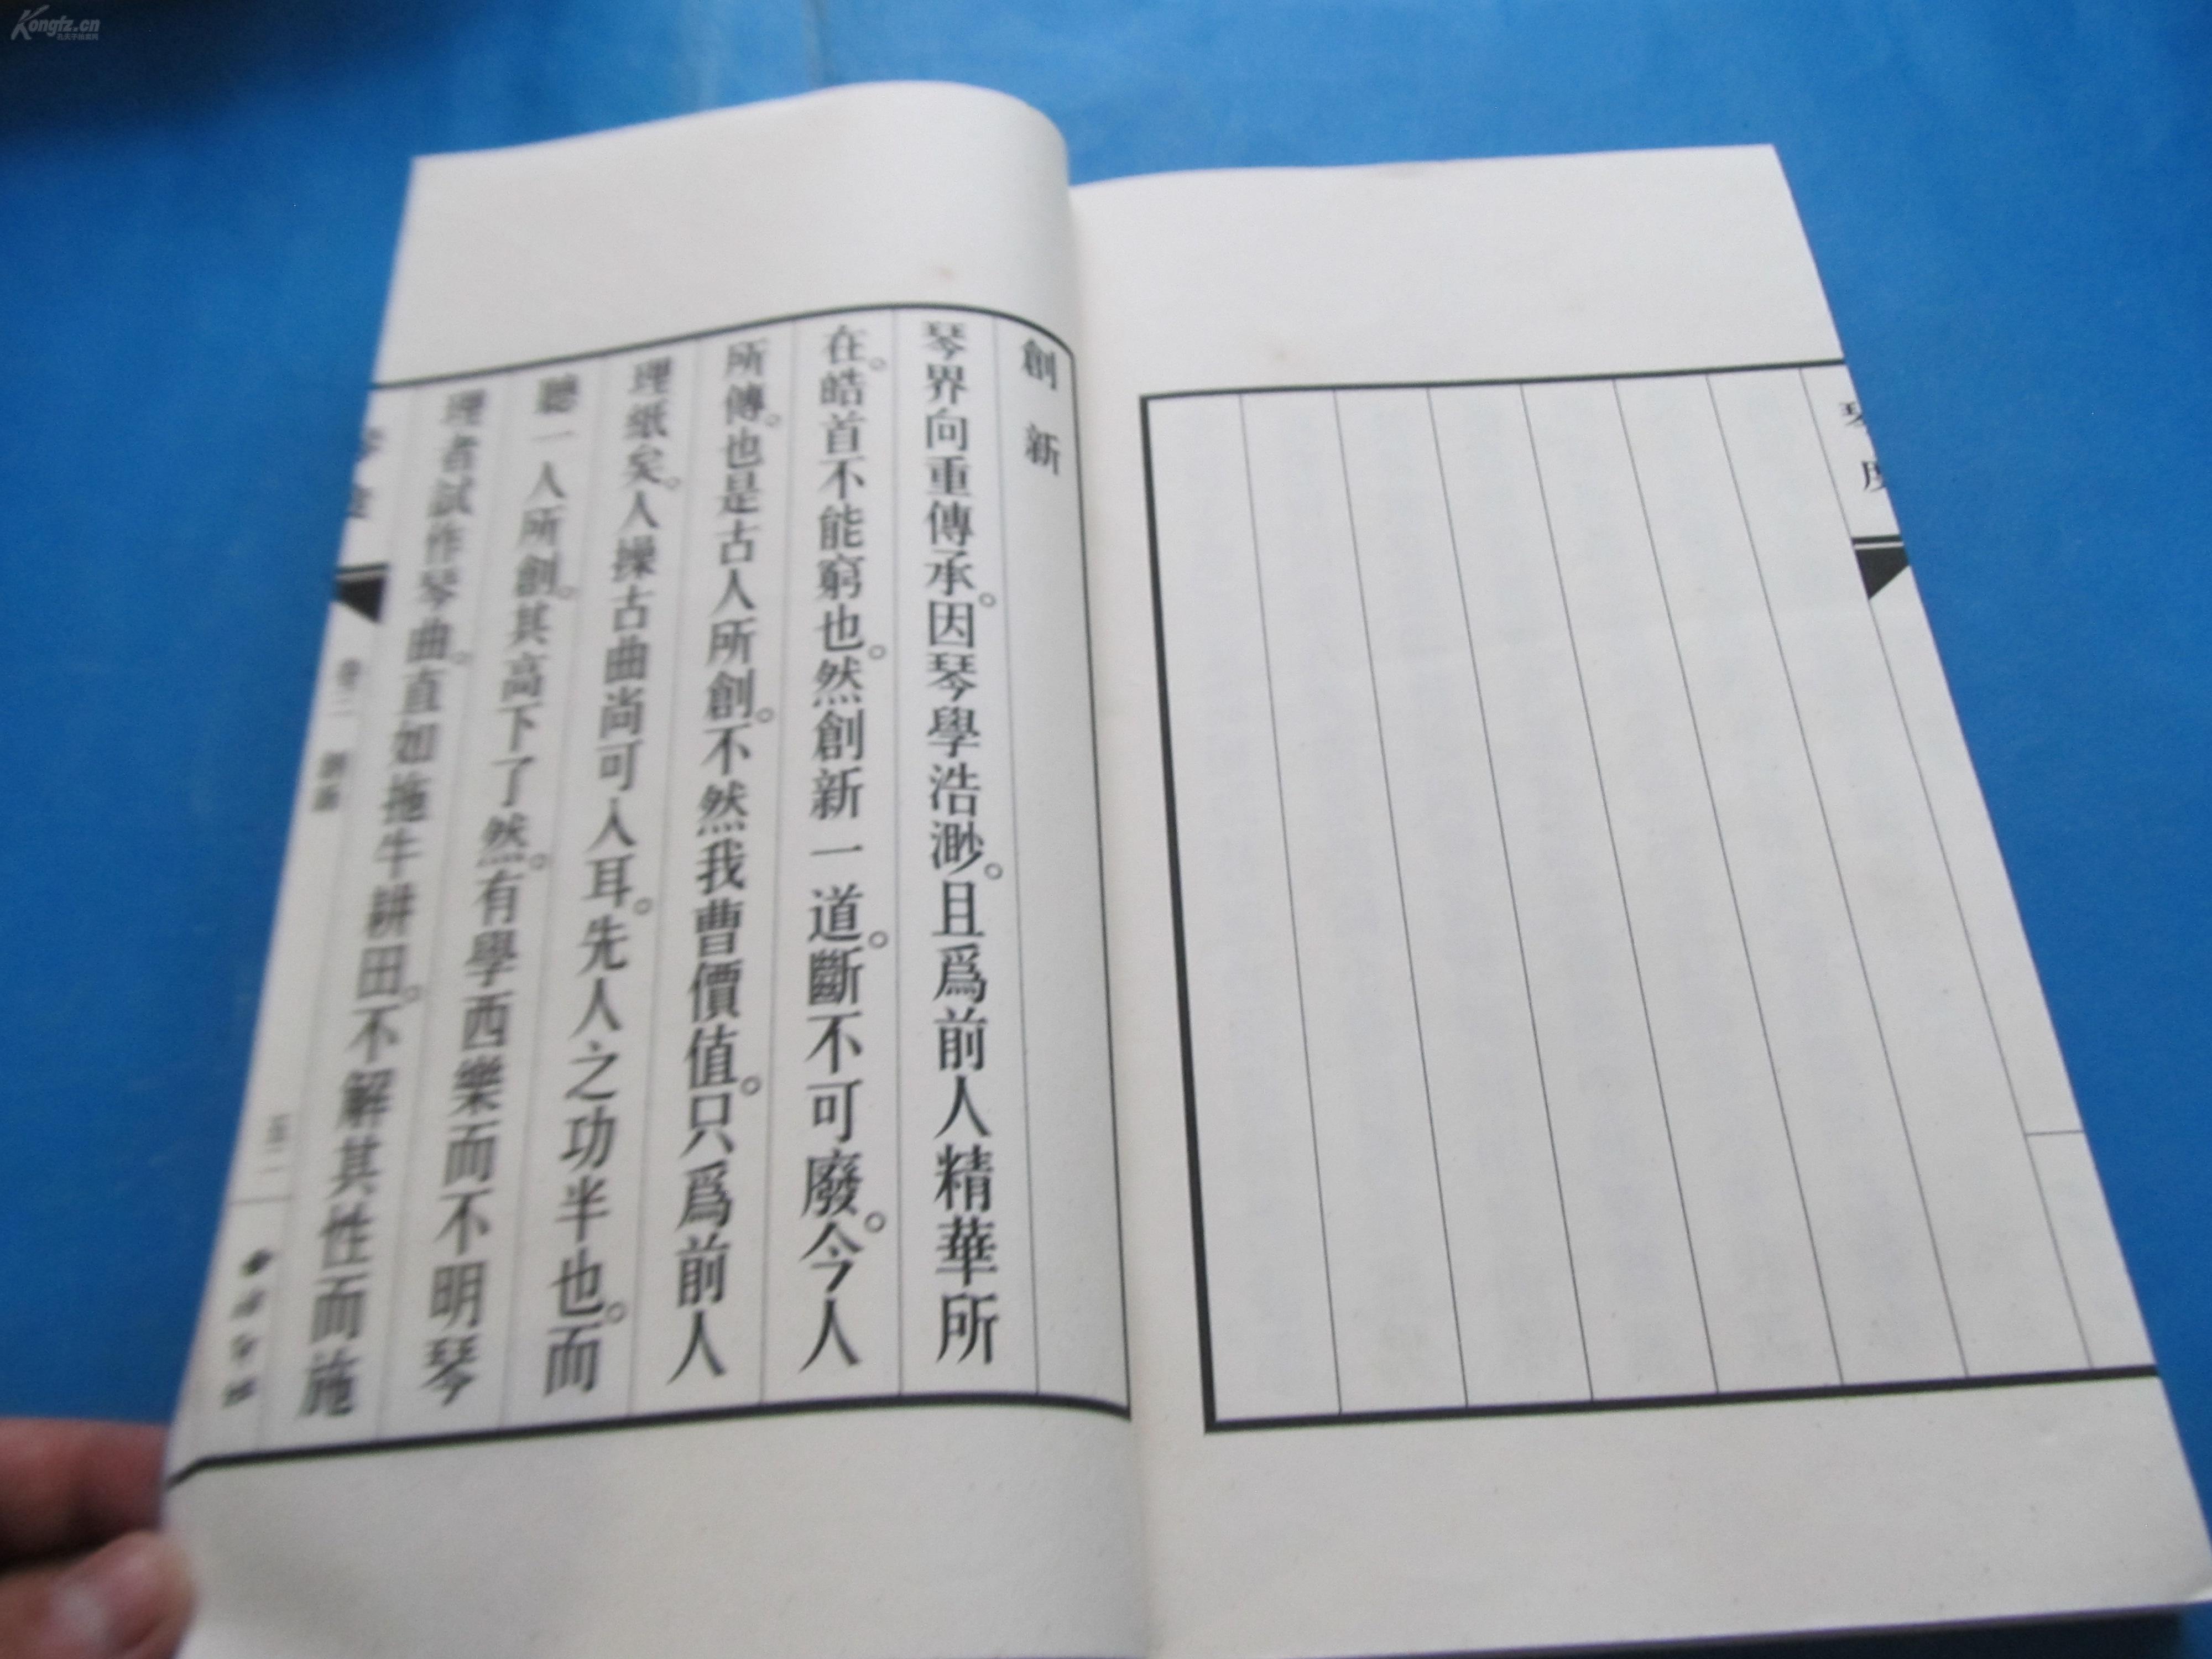 Kongfz.cn
琴度
創新
琴界向重傳承。因琴學浩渺。且爲前人精華所
在。皓首不能窮也。然創新一道。斷不可廢。今人
所傳。也是古人所創。不然我曹價值。只爲前人
理紙矣。人操古曲尚可入耳。先人之功半也。而
聽一人所創。其高下了然。有學西樂而不明琴
理者試作琴曲。直如拖牛耕田。不解其性而施
卷二
五二